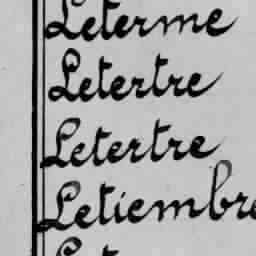 Leterme
Letertre
Letertre
Letiembre